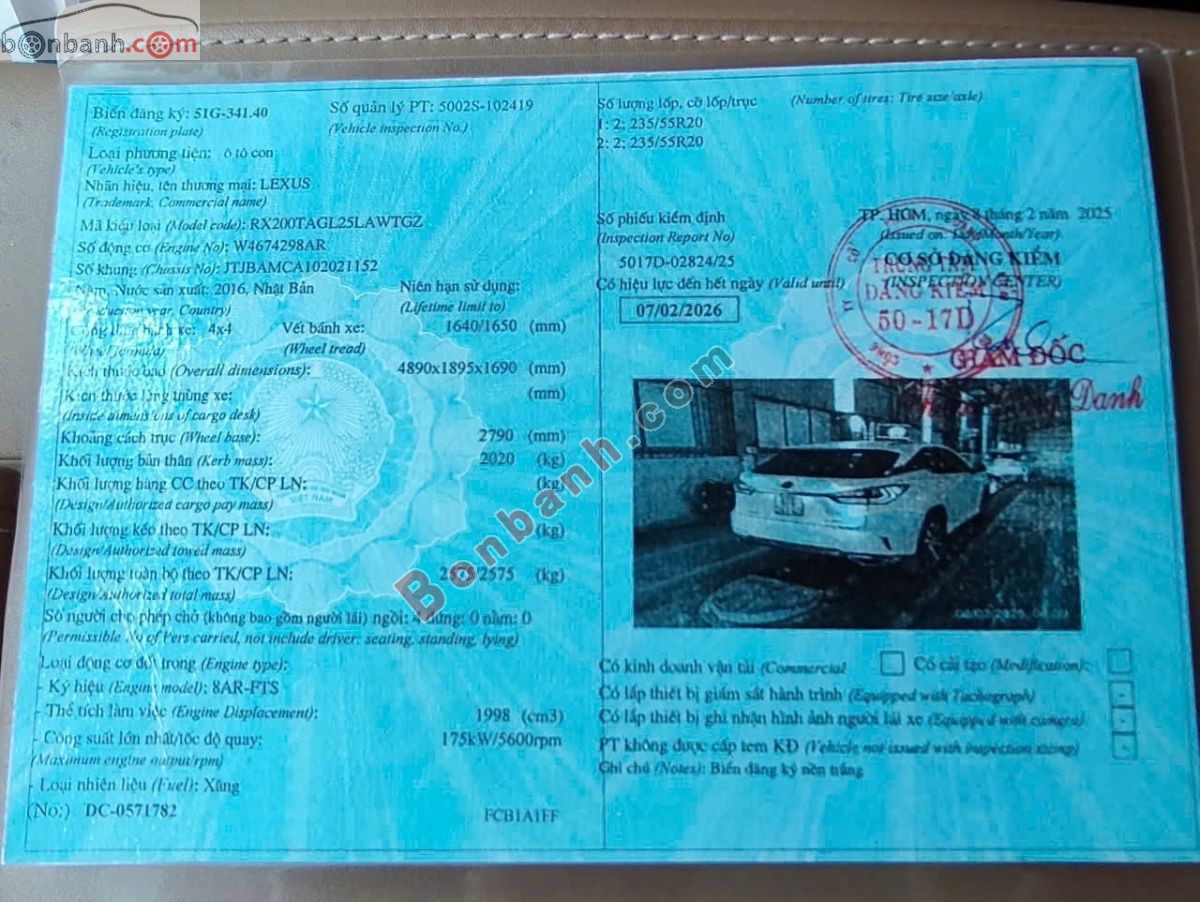 bonbanh.com
Biển đăng ký: 51G-341.40
(Registration plate)
Số quản lý PT: 5002S-102419
(Vehicle inspection No.)
Loại phương tiện: ô tô con
(Vehicle's type)
Nhãn hiệu, tên thương mại: LEXUS
(Trademark, Commercial name)
Mã kiểu loại (Model code): RX200TAGL25LAWTGZ
Số động cơ (Engine No): W4674298AR
Số khung (Chassis No): JTJBAMCA102021152
Năm, Nước sản xuất: 2016, Nhật Bản
Niên hạn sử dụng:
(Production year, Country)
(Lifetime limit to)
Công thức bánh xe: 4x4
Vết bánh xe: 1640/1650 (mm)
(Wheel formula)
(Wheel tread)
Kích thước bao (Overall dimensions): 4890x1895x1690 (mm)
Kích thước lòng thùng xe: (mm)
(Inside dimensions of cargo desk)
Khoảng cách trục (Wheel base): 2790 (mm)
Khối lượng bản thân (Kerb mass): 2020 (kg)
Khối lượng hàng CC theo TK/CP LN: (kg)
(Design/Authorized cargo pay mass)
Khối lượng kéo theo TK/CP LN: (kg)
(Design/Authorized towed mass)
Khối lượng toàn bộ theo TK/CP LN: 2575/2575 (kg)
(Design/Authorized total mass)
Số người cho phép chở (không bao gồm người lái) ngồi: 4 đứng: 0 nằm: 0
(Permissible No of Pers carried, not include driver: seating, standing, lying)
Loại động cơ đốt trong (Engine type):
- Ký hiệu (Engine model): 8AR-FTS
- Thể tích làm việc (Engine Displacement): 1998 (cm3)
- Công suất lớn nhất/tốc độ quay: 175kW/5600rpm
(Maximum engine output/rpm)
- Loại nhiên liệu (Fuel): Xăng
(No:) DC-0571782
FCB1A1FF
VIỆT NAM
Số lượng lốp, cỡ lốp/trục (Number of tires; Tire size/axle)
1: 2; 235/55R20
2: 2; 235/55R20
Số phiếu kiểm định
(Inspection Report No)
5017D-02824/25
Có hiệu lực đến hết ngày (Valid until)
07/02/2026
TP. HCM, ngày 8 tháng 2 năm 2025
(Issued on: Day/Month/Year)
CƠ SỞ ĐĂNG KIỂM
(INSPECTION CENTER)
TRUNG TÂM
ĐĂNG KIỂM
50-17D
GIÁM ĐỐC
Danh
Bonbanh.com
Có kinh doanh vận tải (Commercial
Có cải tạo (Modification):
Có lắp thiết bị giám sát hành trình (Equipped with Tachograph)
Có lắp thiết bị ghi nhận hình ảnh người lái xe (Equipped with camera)
PT không được cấp tem KĐ (Vehicle not issued with inspection stamp)
Ghi chú (Notes): Biển đăng ký nền trắng